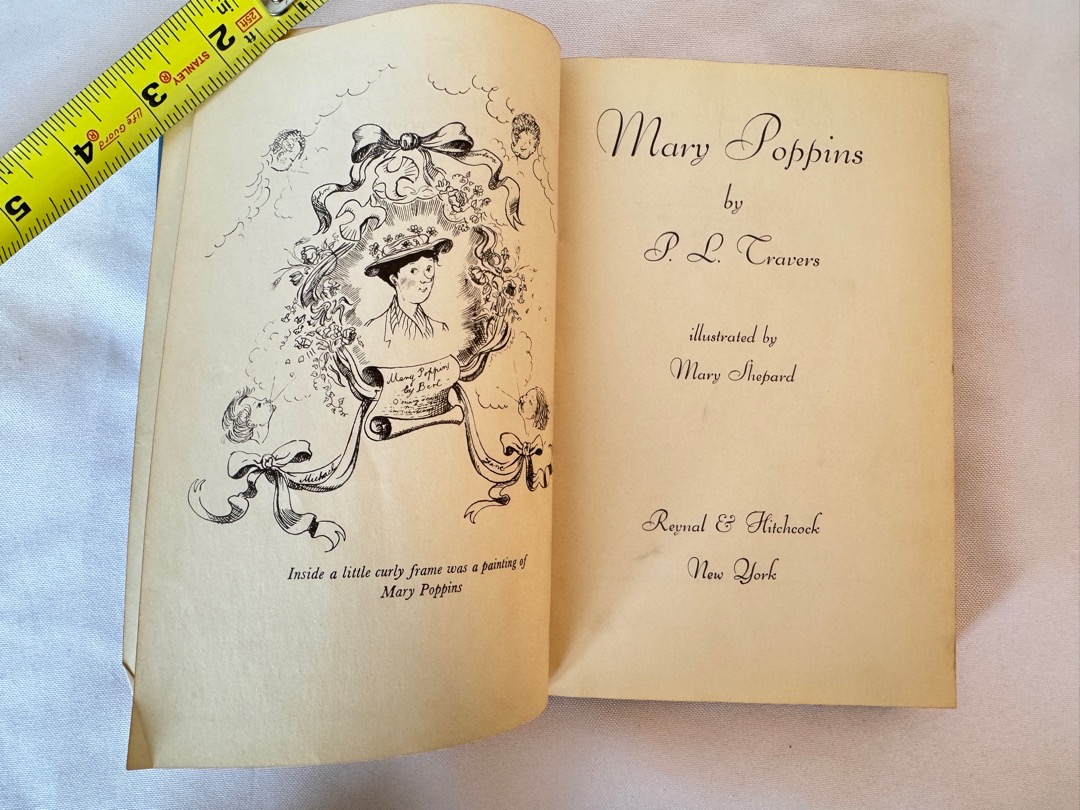 in
ft
25ft
2
STANLEY
®
3
Life Guard
®
4
5
Mary Poppins
by Bert.
Michael
Jane
Inside a little curly frame was a painting of
Mary Poppins
Mary Poppins
by
P. L. Travers
illustrated by
Mary Shepard
Reynal & Hitchcock
New York